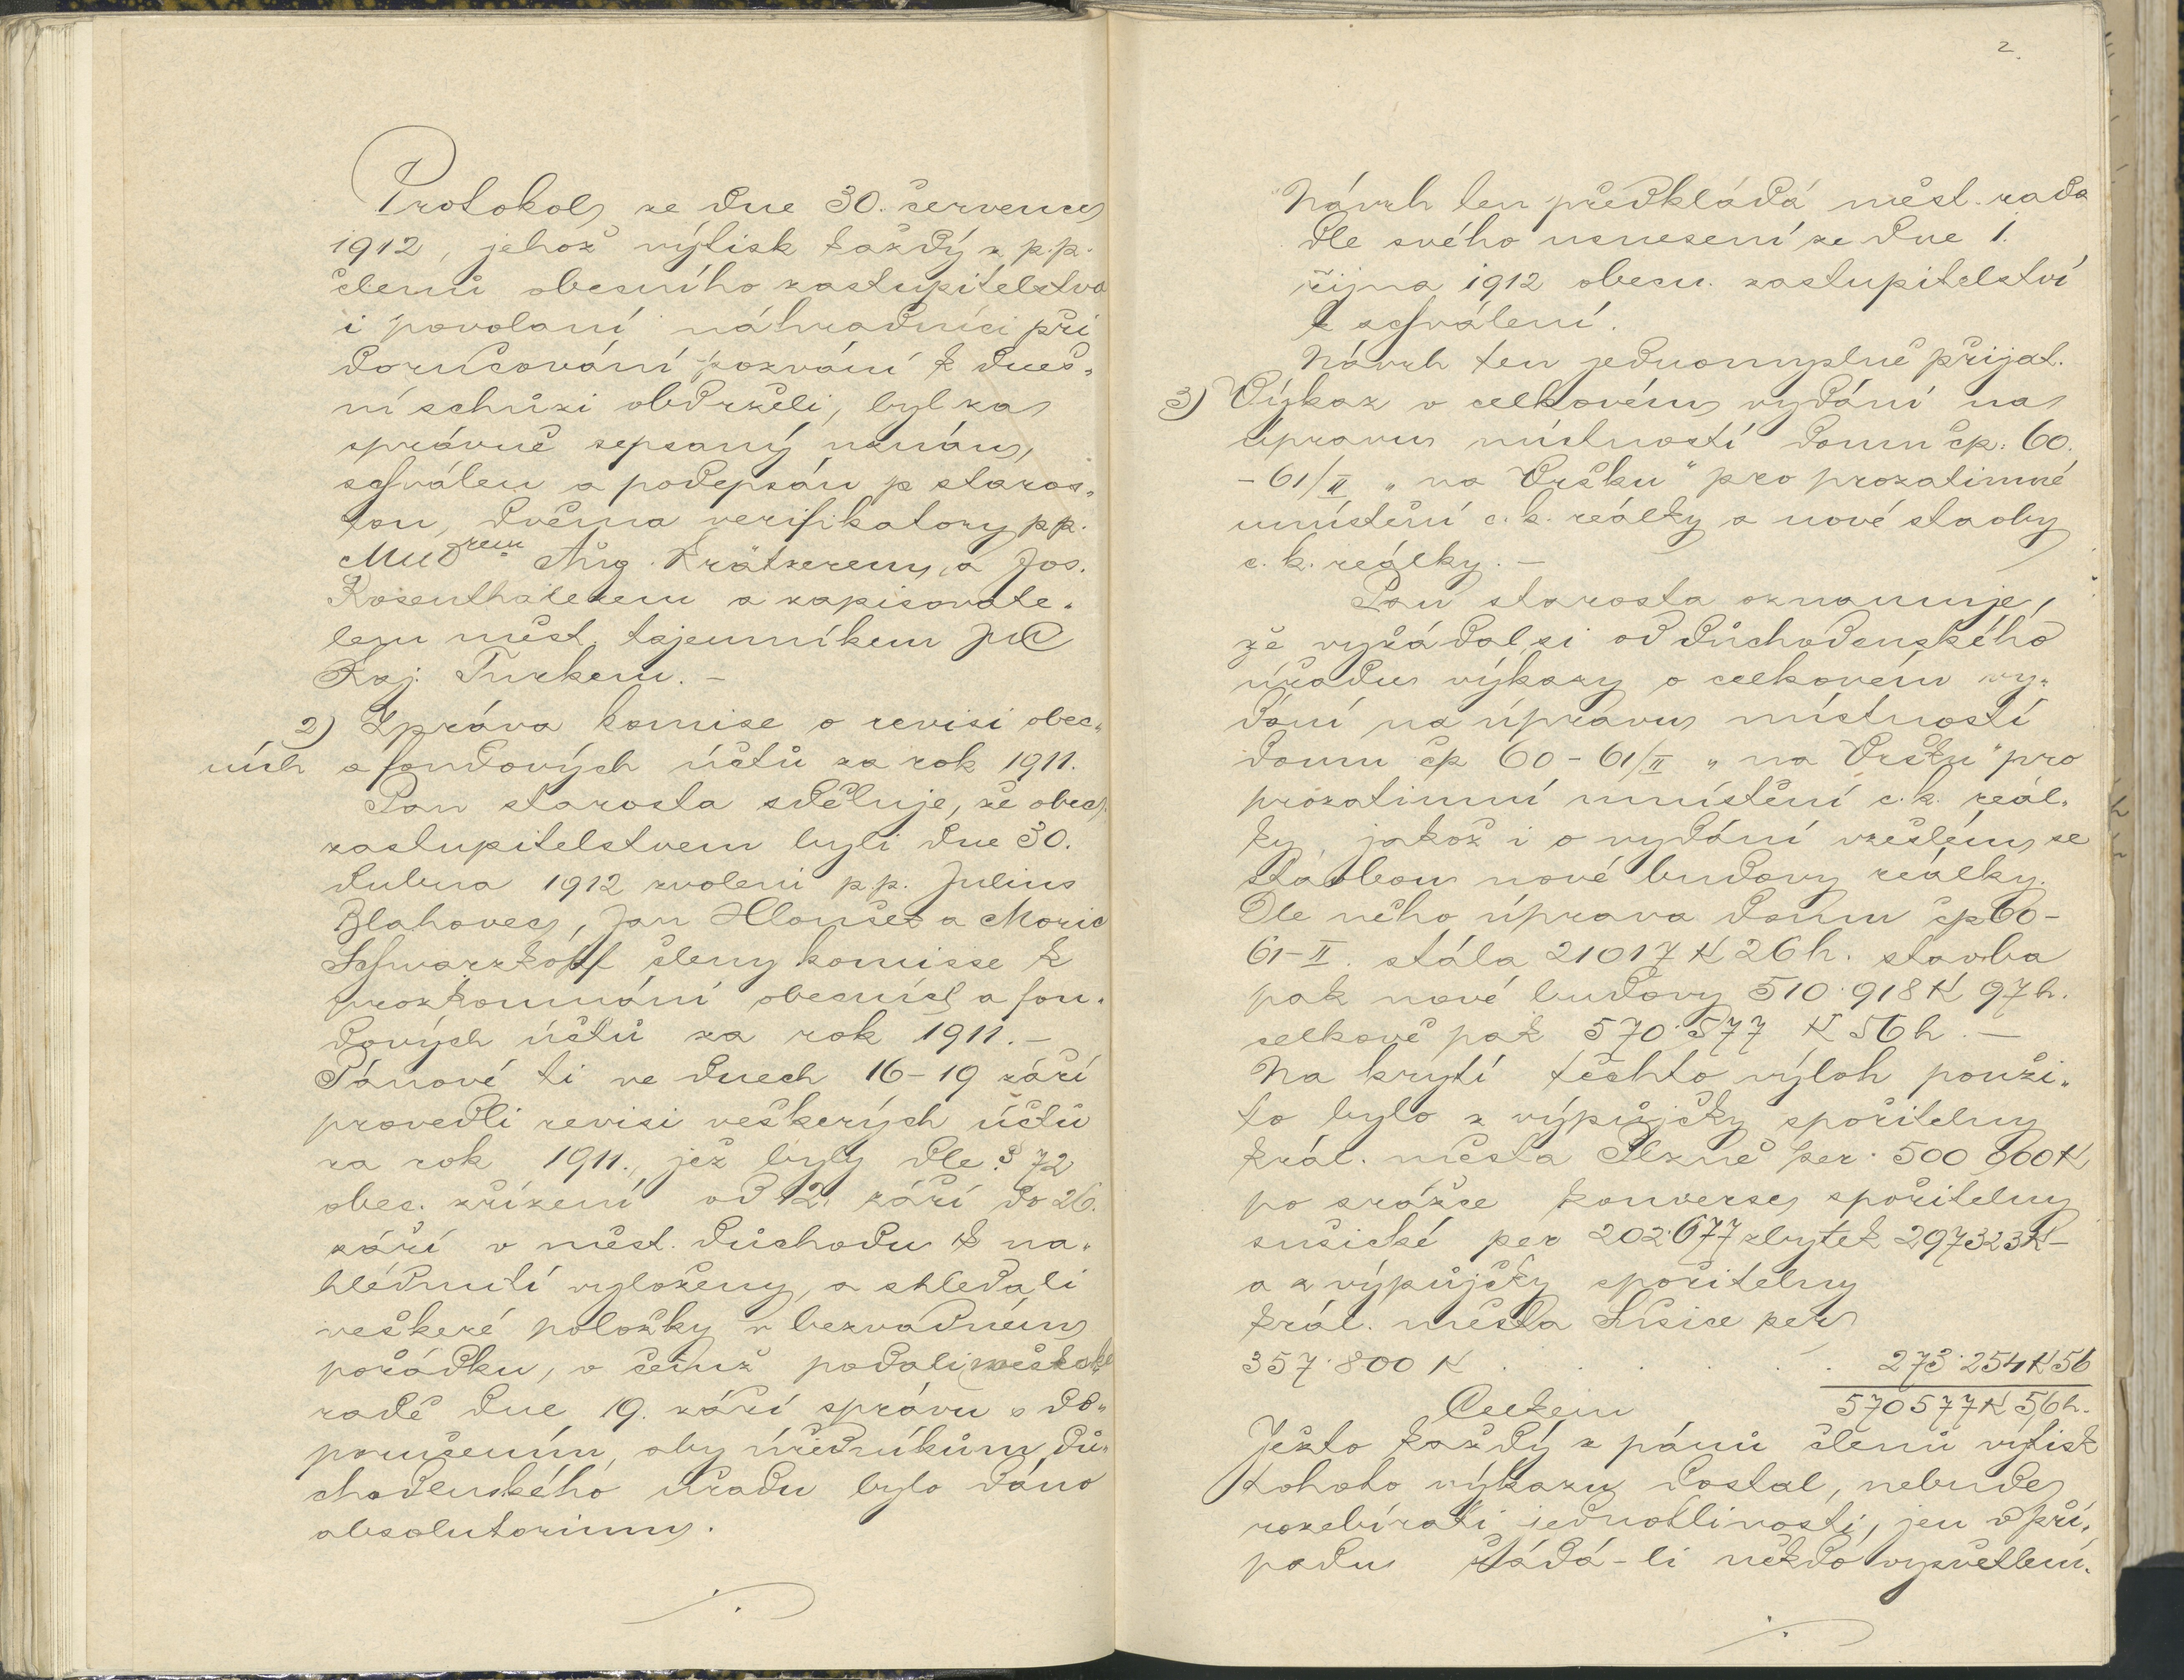 Protokol ze dne 30. července
1912, jehož výtisk každý z p.p.
členů obecního zastupitelstva
i povolaní náhradníci při
doručování pozvání k dneš„
ní schůzi obdrželi, byl za
správně sepsaný uznán,
schválen a podepsán p staros„
tou, dvěma verifikatory pp.
MUDrem Aug. Krätzerem, a Jos.
Rosenthalerem a zapisovate„
lem měst. tajemníkem JUC
Kaj. Turkem. –
2) Zpráva komise o revisi obec„
ních a fondových účtů za rok 1911.
Pan starosta sděluje, že obec.
zastupitelstvem byli dne 30.
dubna 1912 zvoleni p.p. Julius
Blahovec, Jan Hloušek a Moric
Schwarzkopf členy komisse k
prozkoumání obecních a fon„
dových účtů za rok 1911. –
Pánové ti ve dnech 16–19 září
provedli revisi veškerých účtů
za rok 1911., jež byly dle § 72
obec. zřízení od 12. září do 26.
září v měst. důchodu k na„
hlédnutí vyloženy, a shledali
veškeré položky v bezvadném
pořádku, o čemž podali městské
radě dne 19. září správu s do„
poručením, aby úředníkům dů„
chodenského úřadu bylo dáno
absolutorium.
2.
Návrh ten předkládá měst. rada
dle svého usnesení ze dne 1.
října 1912 obecn. zastupitelství
k schválení.
Návrh ten jednomyslně přijat.
3) Výkaz o celkovém vydání na
úpravu místností domu čp. 60.
– 61/II „na Vršku" pro prozatimné
umístění c. k. reálky a nové stavby
c. k. reálky. –
Pan starosta oznamuje,
že vyžádal si od důchodenského
úřadu výkazy o celkovém vy„
dání na úpravu místností
domu čp 60 – 61/II „na Vršku" pro
prozatimní umístění c. k. reál„
ky, jakož i o vydání vzešlém se
stavbou nové budovy reálky.
Dle něho úprava domu čp 60 –
61–II. stála 21017 K 26 h. stavba
pak nové budovy 510.918 K 97 h.
celkově pak 570.577 K 56 h. –
Na krytí těchto výloh použi„
to bylo z výpůjčky spořitelny
král. města Plzně per 500 000 K
po srážce konverse spořitelny
sušické per 202.677 zbytek 297323 K –
a z výpůjčky spořitelny
král. města Sušice per
357.800 K . . . . . . 273.254 K 56
Celkem 570577 K 56 h.
Ježto každý z pánů členů výtisk
tohoto výkazu dostal, nebude
rozebírati jednotlivosti, jen v pří„
padu žádá-li někdo vysvětlení.